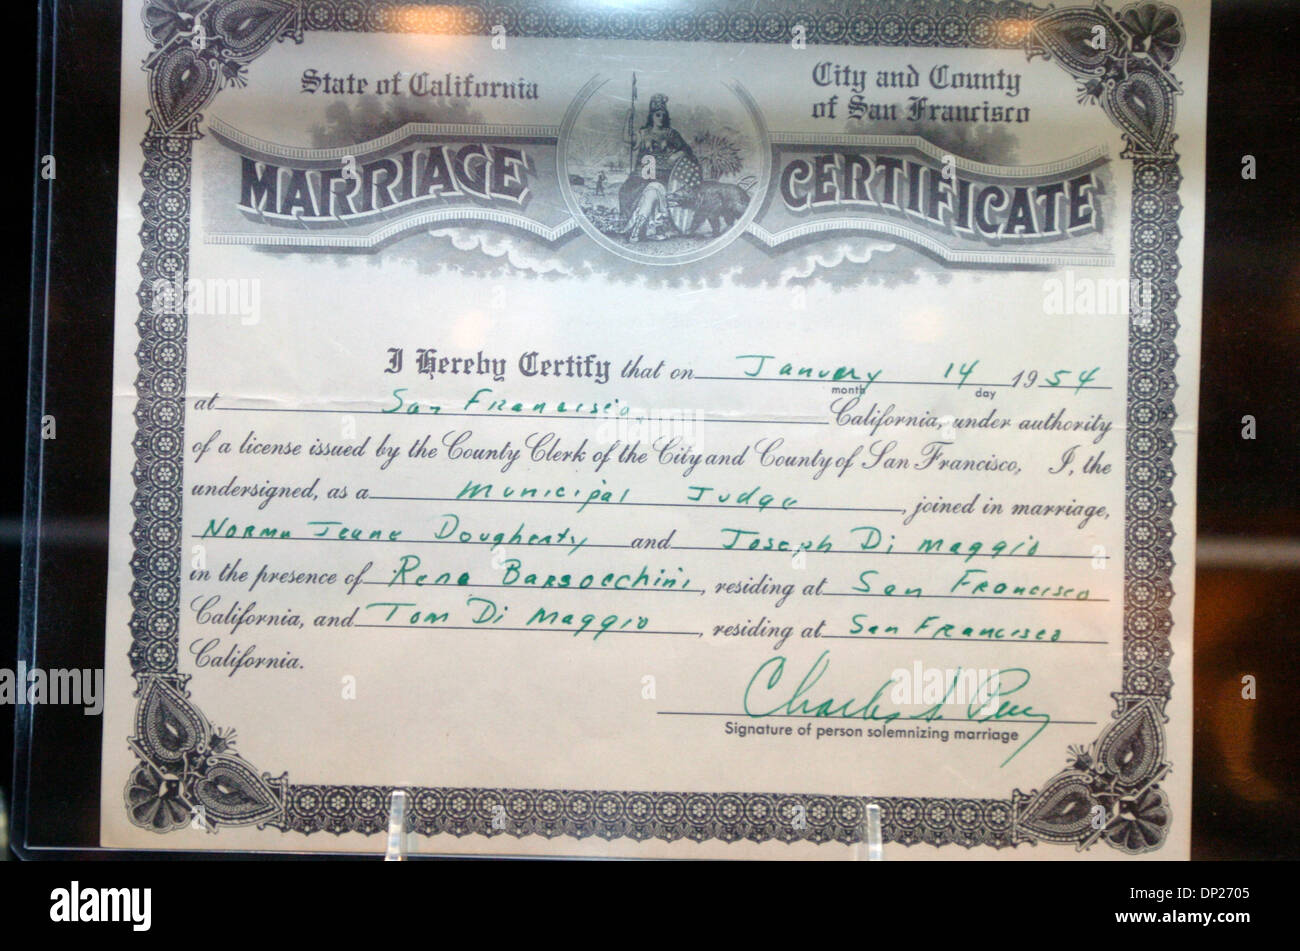 State of California
City and County
of San Francisco
MARRIAGE CERTIFICATE
I Hereby Certify that on January 14 1954
month day
at San Francisco, California, under authority
of a license issued by the County Clerk of the City and County of San Francisco, I, the
undersigned, as a Municipal Judge, joined in marriage,
Norma Jeane Dougherty and Joseph Di Maggio
in the presence of Reno Barsocchini, residing at San Francisco
California, and Tom Di Maggio, residing at San Francisco
California.
Charles S. Perry
Signature of person solemnizing marriage
alamy
alamy
Image ID: DP2705
www.alamy.com